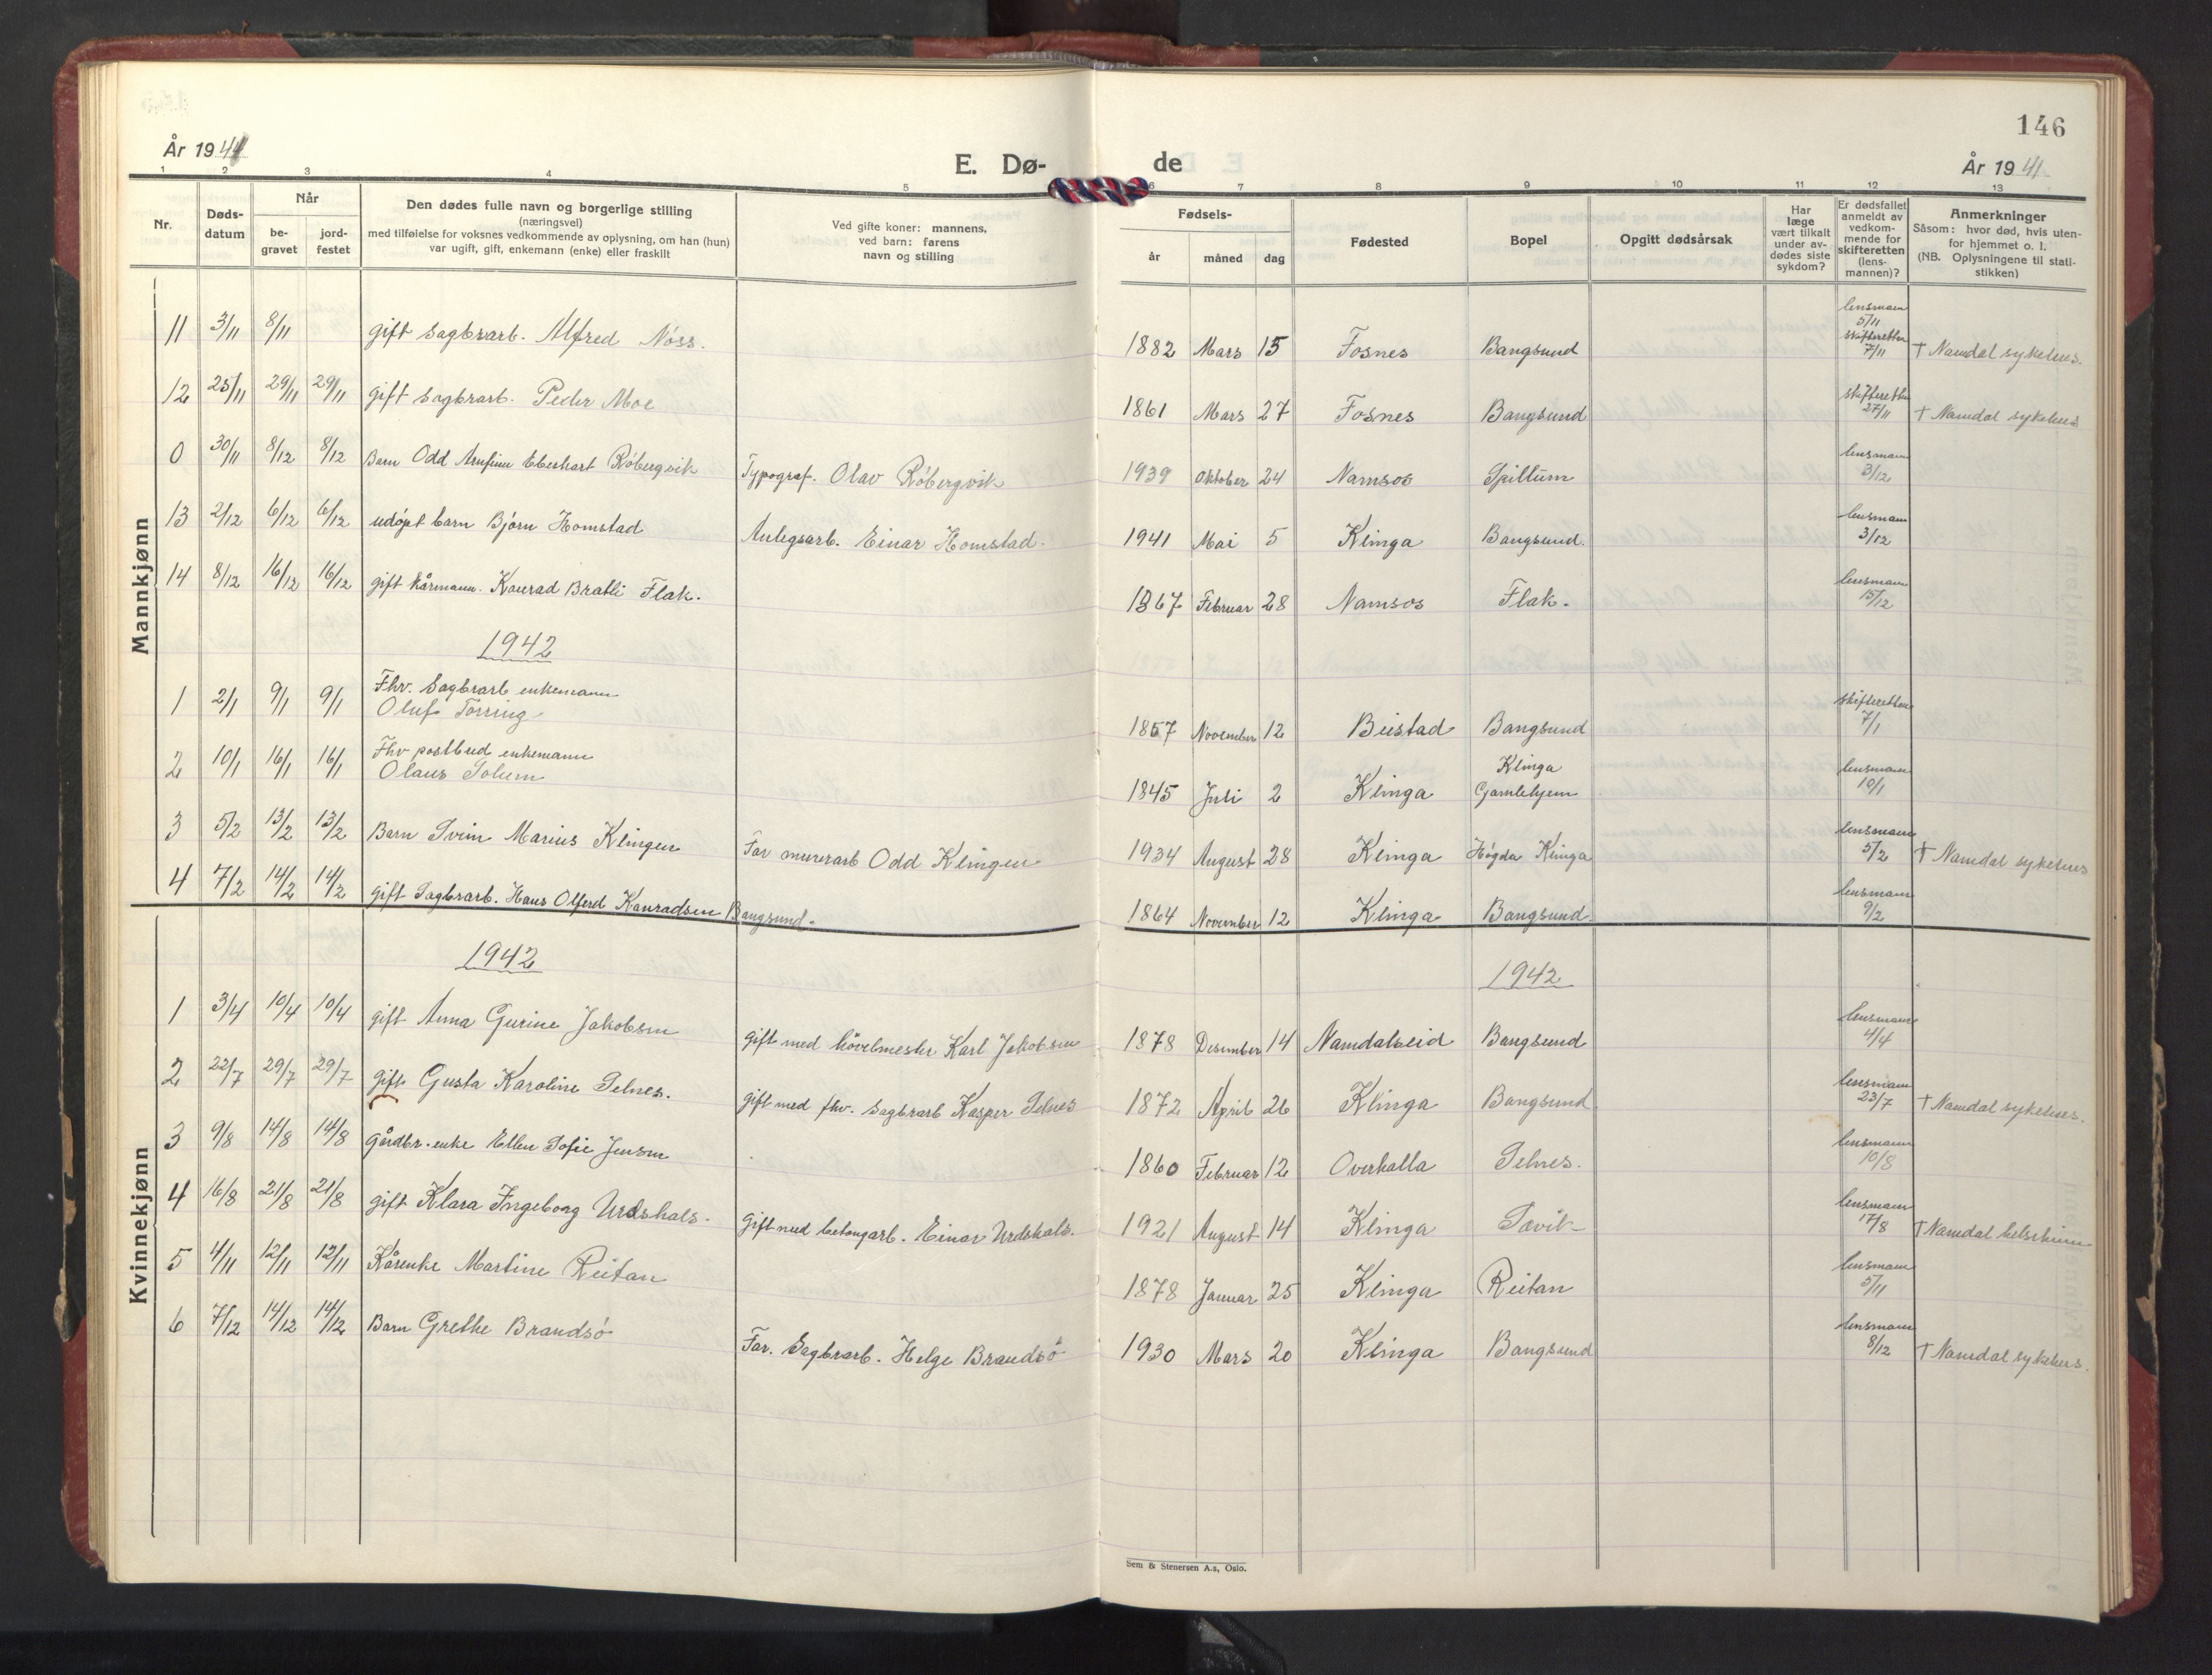 146
År 1941
E. Dø-
de
År 1941
1 2 3 4 5 6 7 8 9 10 11 12 13
Nr.
Døds-
datum
Når
be-
gravet
jord-
festet
Den dødes fulle navn og borgerlige stilling
(næringsvei)
med tilføielse for voksnes vedkommende av oplysning, om han (hun)
var ugift, gift, enkemann (enke) eller fraskilt
Ved gifte koner: mannens,
ved barn: farens
navn og stilling
Fødsels-
år
måned
dag
Fødested
Bopel
Opgitt dødsårsak
Har
læge
vært tilkalt
under av-
dødes siste
sykdom?
Er dødsfallet
anmeldt av
vedkom-
mende for
skifteretten
(lens-
mannen)?
Anmerkninger
Såsom: hvor død, hvis uten-
for hjemmet o. l.
(NB. Oplysningene til stati-
stikken)
Mannkjønn
11 3/11 8/11 gift sagbrarb. Alfred Nøss. 1882 Mars 15 Fosnes Bangsund lensmann 5/11 skifteretten 7/11 † Namdal sykehus.
12 25/11 29/11 29/11 gift sagbrarb. Peder Moe 1861 Mars 27 Fosnes Bangsund skifteretten 27/11 † Namdal sykehus
0 30/11 8/12 8/12 Barn Odd Arnfinn Eberhart Røbergvik Typograf. Olav Røbergvik 1939 Oktober 24 Namsos Spillum lensmann 3/12
13 2/12 6/12 6/12 udøpt barn Bjørn Homstad Anlegsarb. Einar Homstad. 1941 Mai 5 Klinga Bangsund. lensmann 3/12
14 8/12 16/12 16/12 gift kårmann. Konrad Bratli Flak. 1867 Februar 28 Namsos Flak. lensmann 15/12
1942
1 2/1 9/1 9/1 Fhv. Sagbrarb enkemann
Oluf Tørring 1857 November 12 Beistad Bangsund skifteretten 7/1
2 10/1 16/1 16/1 Fhv postbud enkemann
Olaus Solum 1845 Juli 2 Klinga Klinga Gamlehjem lensmann 10/1
3 5/2 13/2 13/2 Barn Svein Marius Klingen Far murerarb Odd Klingen 1934 August 28 Klinga Høgda Klinga lensmann 5/2 † Namdal sykehus
4 7/2 14/2 14/2 gift Sagbrarb. Hans Olferd Konradsen Bangsund. 1864 November 12 Klinga Bangsund. lensmann 9/2
Kvinnekjønn
1942
1942
1 3/4 10/4 10/4 gift Anna Gurine Jakobsen gift med høvelmester Karl Jakobsen 1878 Desember 14 Namdalseid Bangsund lensmann 4/4
2 22/7 29/7 29/7 gift Gusta Karoline Selnes. gift med fhv. sagbrarb Kasper Selnes 1872 April 26 Klinga Bangsund lensmann 23/7 † Namdal sykehus.
3 9/8 14/8 14/8 gårdbr. enke Ellen Sofie Jensen 1860 Februar 12 Overhalla Selnes. lensmann 10/8
4 16/8 21/8 21/8 gift Klara Ingeborg Urdshals. Gift med betongarb. Einar Urdshals. 1921 August 14 Klinga Sævik lensmann 17/8 † Namdal helseheim
5 4/11 12/11 12/11 Kårenke Martine Reitan 1878 Januar 25 Klinga Reitan lensmann 5/11
6 7/12 14/12 14/12 Barn Grethe Brandsø Far. Sagbrarb. Helge Brandsø 1930 Mars 20 Klinga Bangsund lensmann 8/12 † Namdal sykehus.
Sem & Stenersen A.s, Oslo.